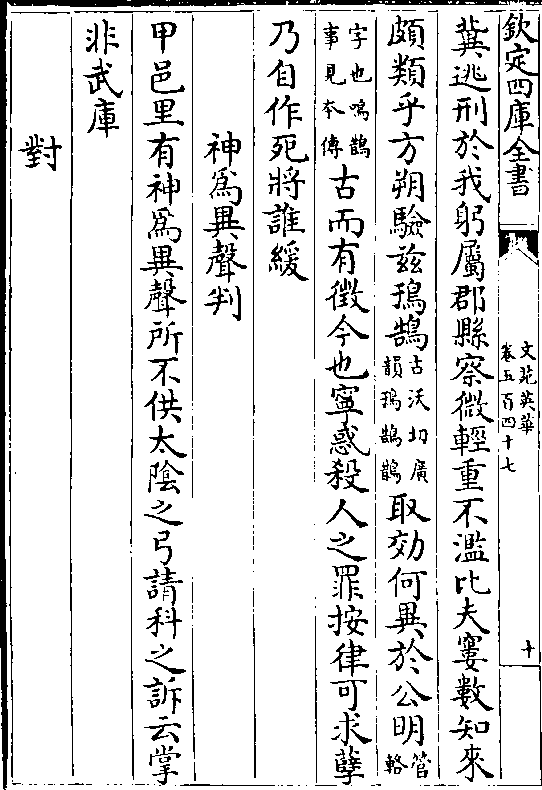 欽定四庫全書
文苑英華
卷五百四十七
十
冀逃刑於我躬屬郡縣察微輕重不濫比夫寠數知來
頗類乎方朔驗兹鳿鵠古沃切廣韻鳿鵠鵲取効何異於公明管輅
字也鳴鵲事見本傳古而有徵今也寧惑殺人之罪按律可求孽
乃自作死將誰緩
神爲異聲判
甲邑里有神爲異聲所不供太陰之弓請科之訴云掌
非武庫
對